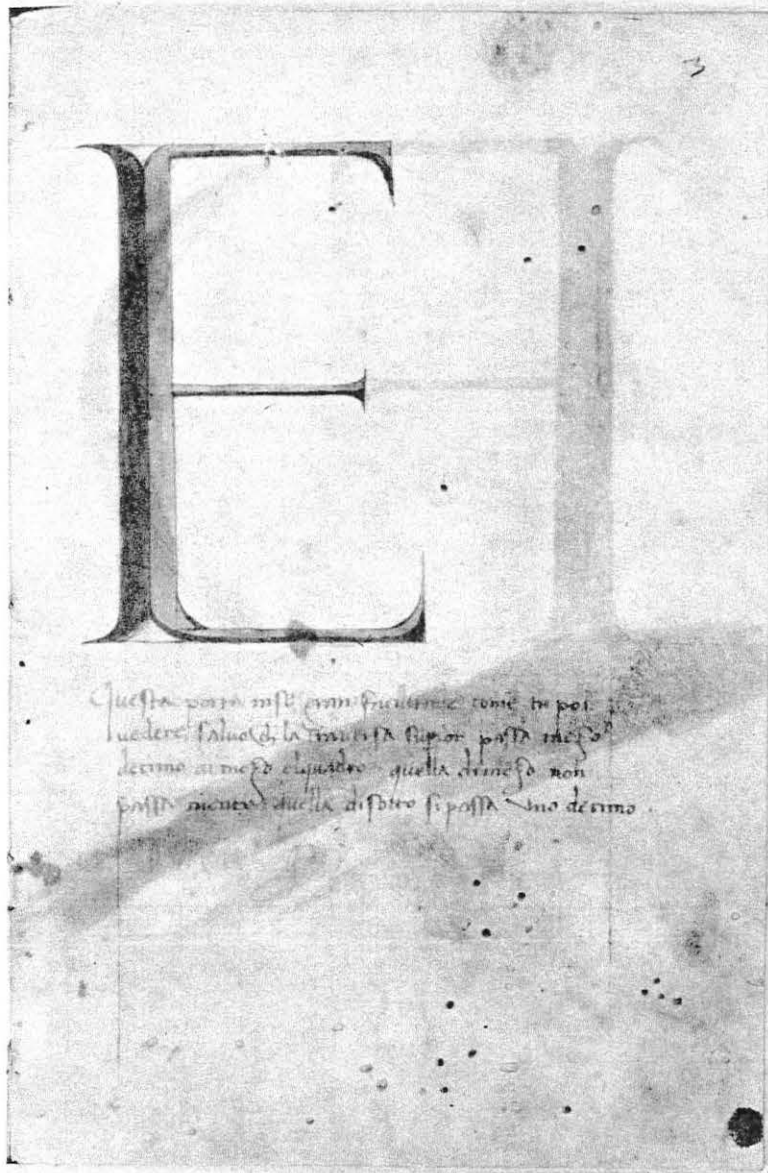 3
E
Questa porta in se gran facilitate come tu poi
uedere saluo ch la trauersa supior passa mezo
decimo al mezo el quadro quella di mezo non
passa niente quella di sotto si passa uno decimo.